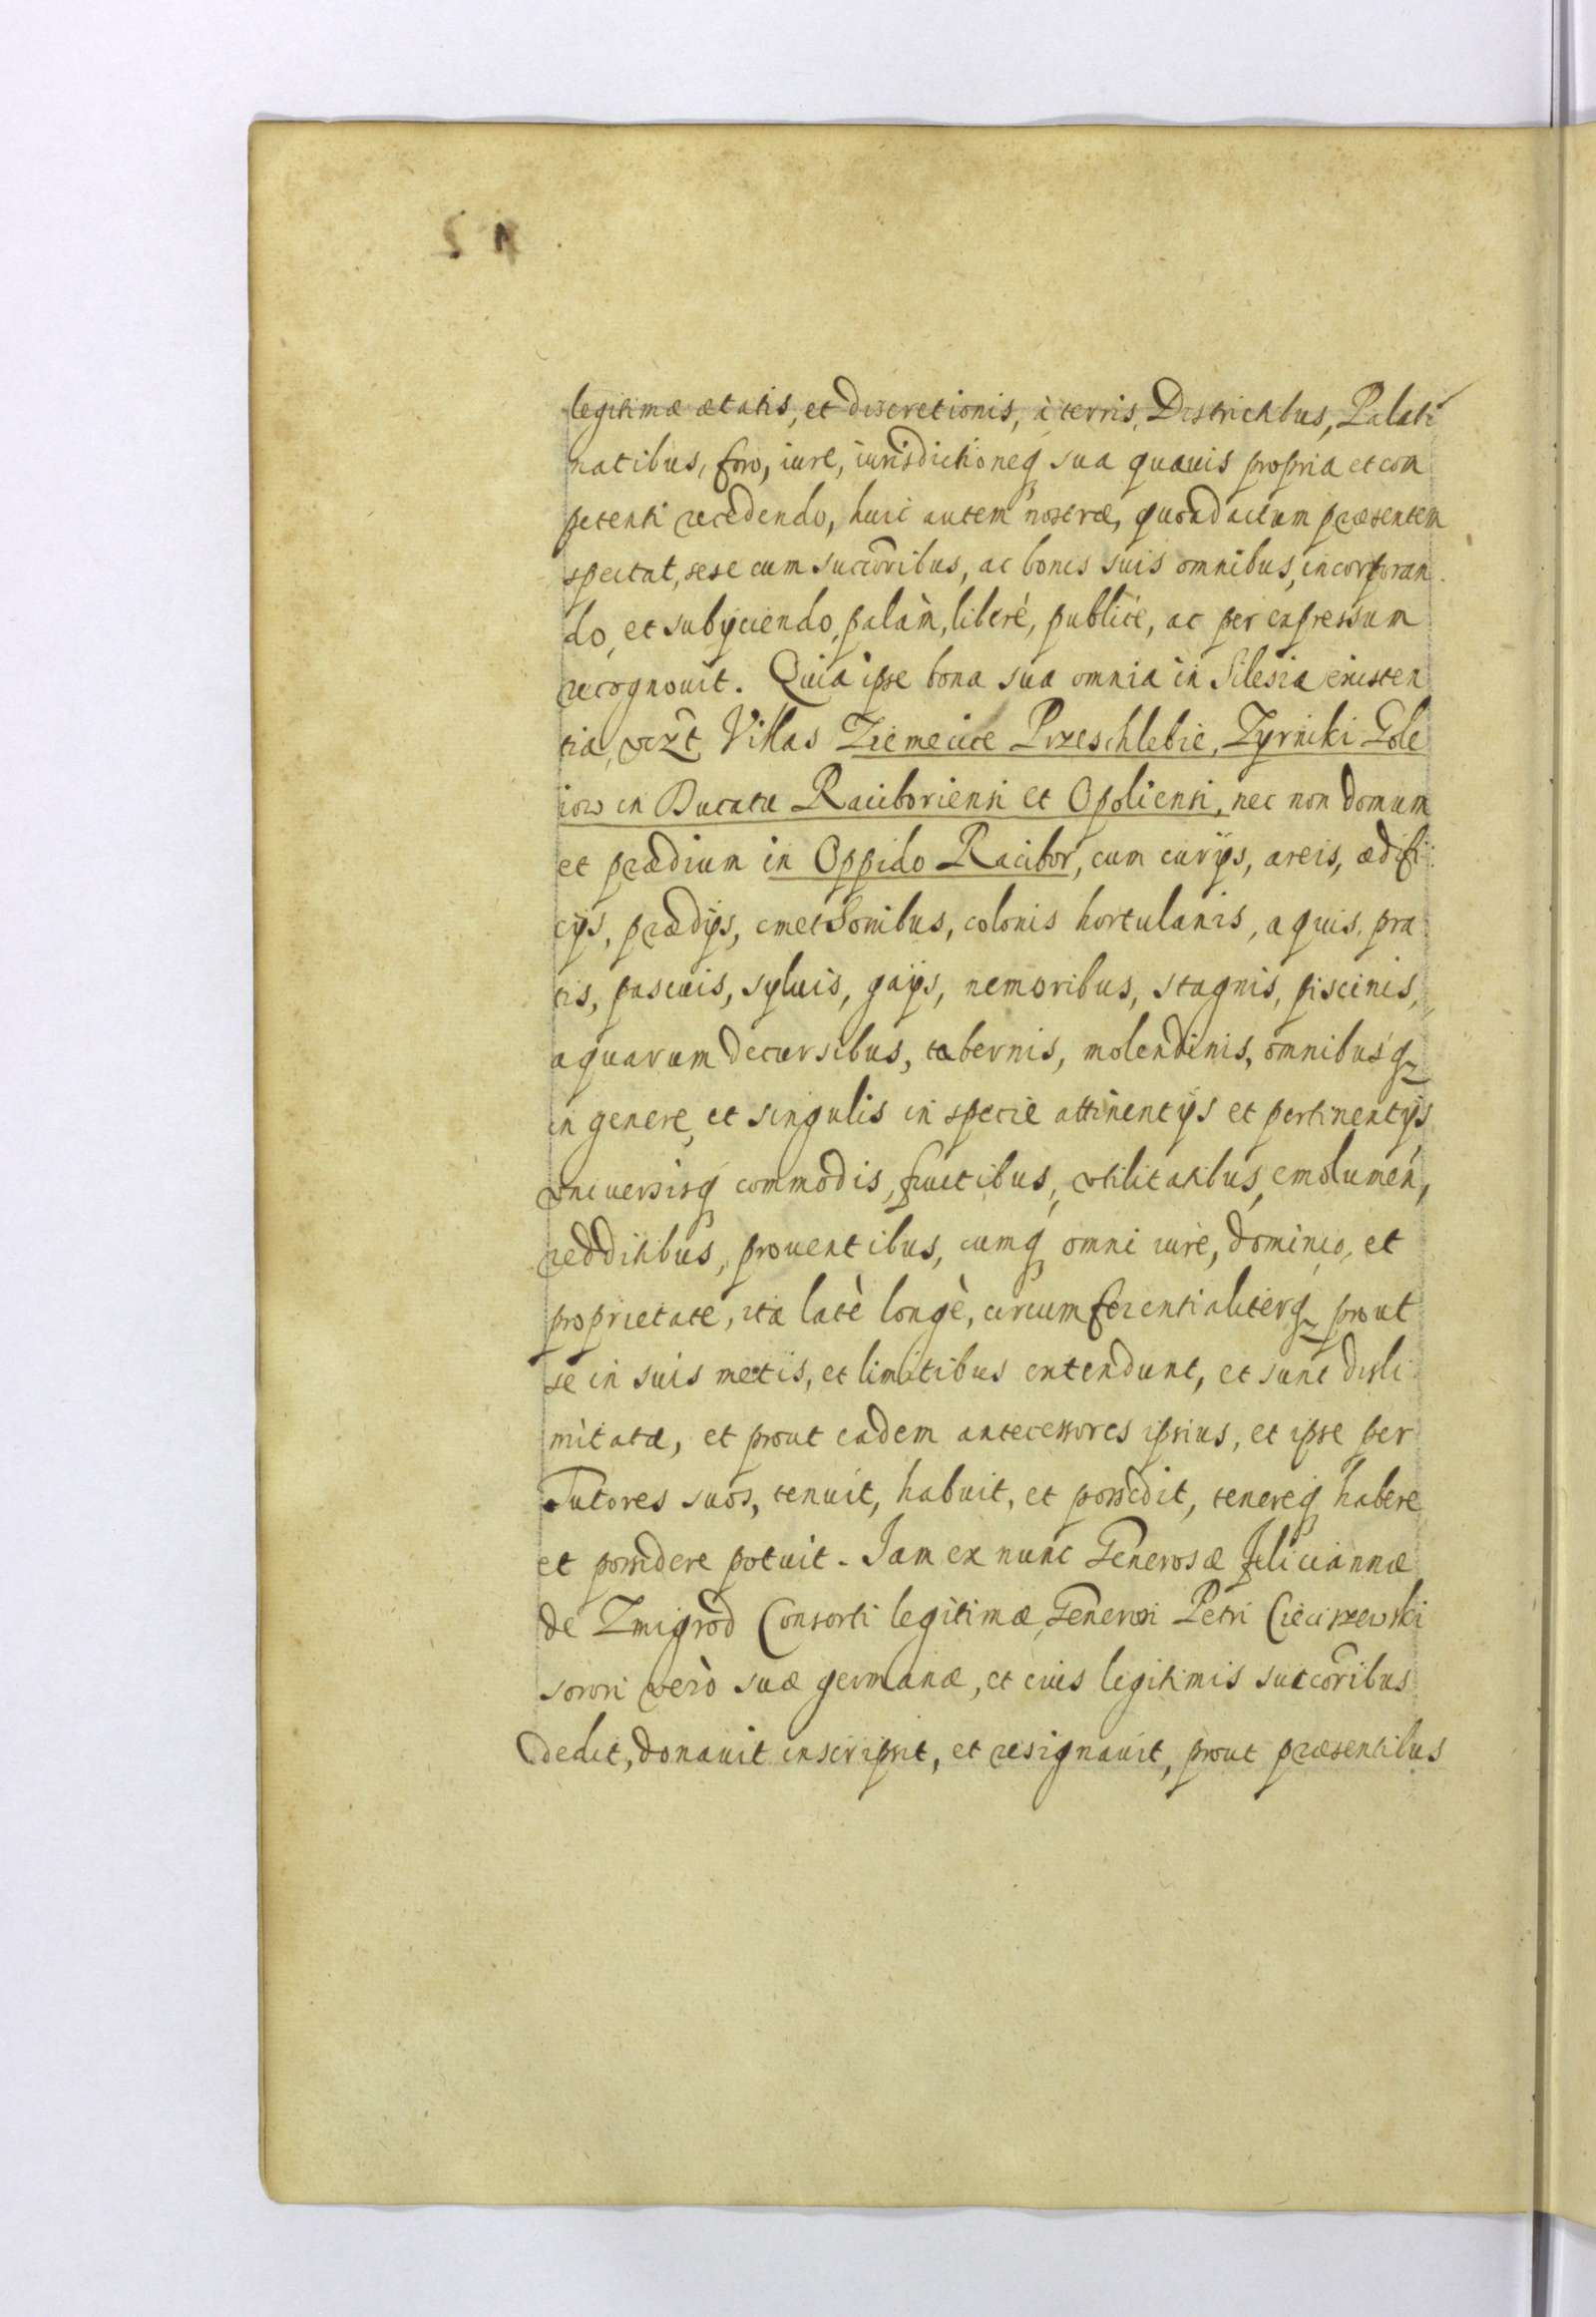 legitimæ ætatis, et discretionis, à terris, Districtibus, Palati
natibus, foro, iure, iurisdictioneq sua quauis propria et com
petenti recedendo, huic autem nostræ, quoad actum præsentem
spectat, sese cum succoribus, ac bonis suis omnibus, incorporan
do, et subijciendo, palàm, liberé, publicé, ac per expressum
recognouit. Quia ipse bona sua omnia in Silesia existen
tia, vczt Villas Ziemecice Przeschlebie, Zyrniki Gole
iow in Ducatu Raciboriensi et Opoliensi, nec non domum
et prædium in Oppido Racibor, cum curijs, areis, ædifi
cijs, prædijs, cmethonibus, colonis hortulanis, aquis, pra
tis, pascuis, syluis, gaijs, nemoribus, stagnis, piscinis,
aquarum decursibus, tabernis, molendinis, omnibusq
in genere, et singulis in specie attinentijs et pertinentijs
vniuersisq commodis, fructibus, vtilitatibus, emolumen,
redditibus, prouentibus, cumq omni iure, dominio, et
proprietate, ita latè longè, circumferentialiterq prout
se in suis metis, et limitibus extendunt, et sunt disli
mitata, et prout eadem antecessores ipsius, et ipse per
Tutores suos, tenuit, habuit, et possedit, tenereq habere
et possidere potuit. Iam ex nunc Generosæ Feliciannæ
de Zmigrod Consorti legitimæ, Generosi Petri Cieciszewski
sorori verò suæ germanæ, et eius legitimis succoribus
dedit, donauit inscripsit, et resignauit, prout præsentibus